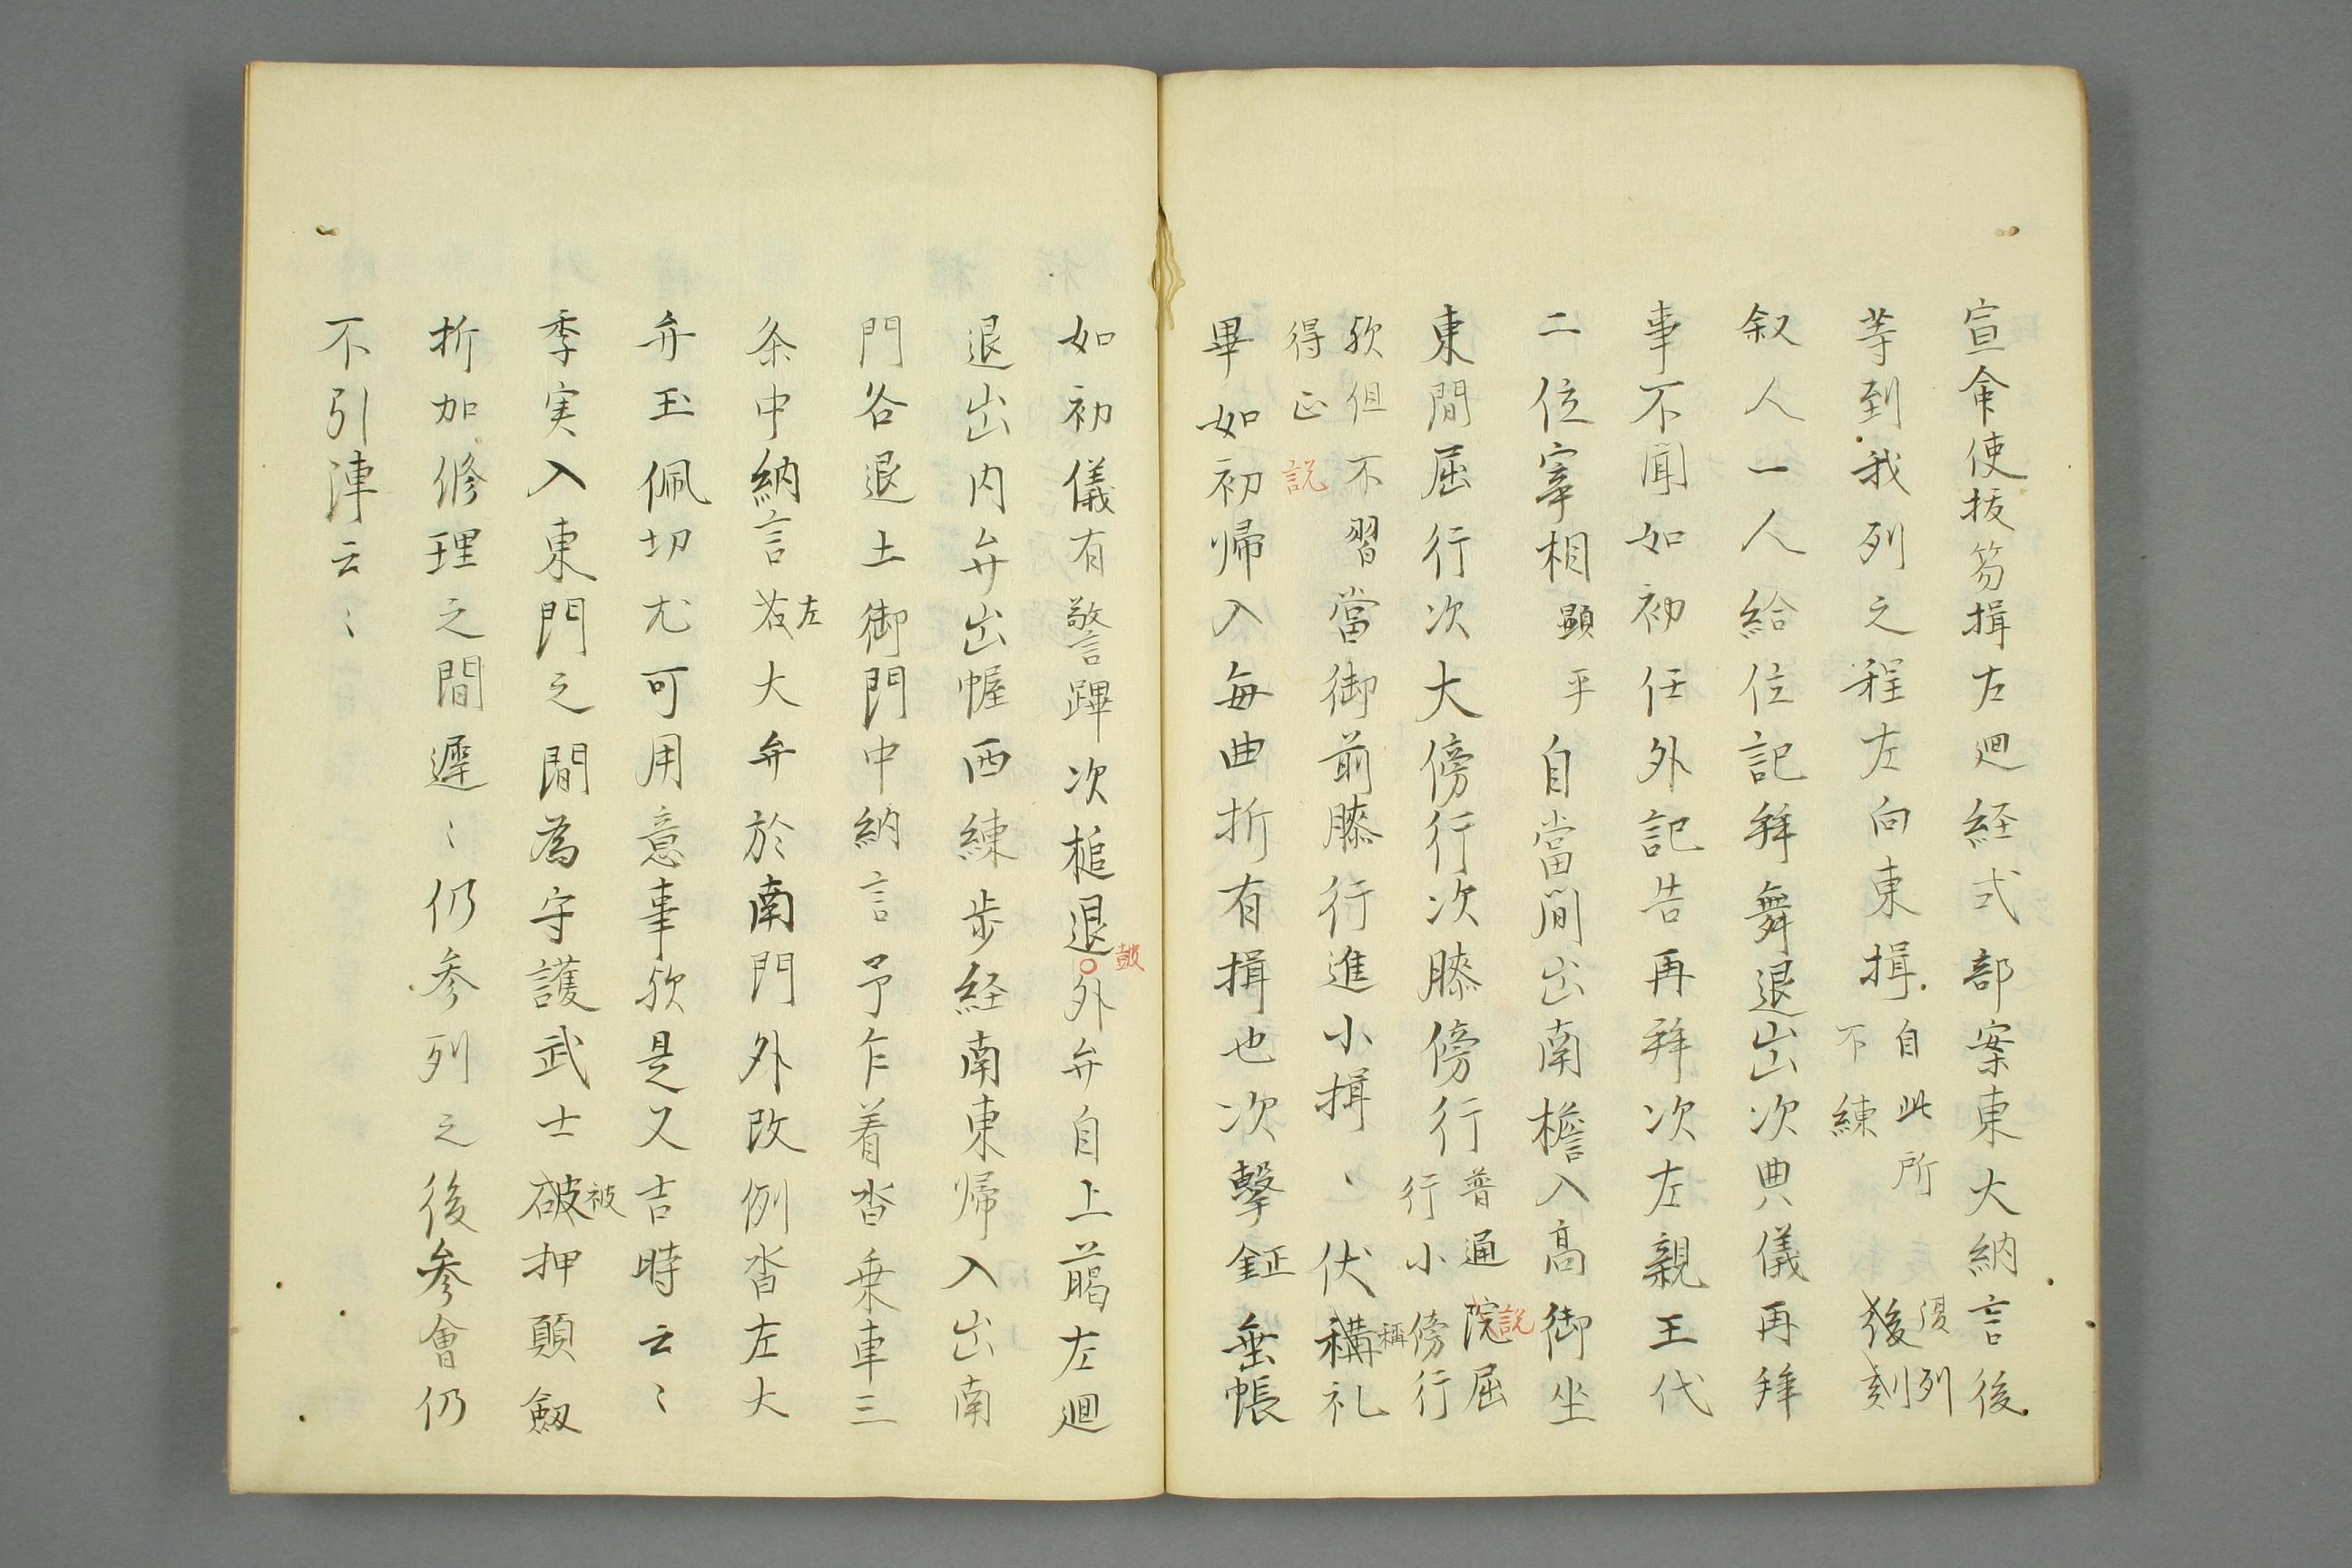 宣命使抜笏揖左廻経式部案東大納言後
等到我列之程左向東揖自此所不練後刻
復列
叙人一人給位記拜舞退出次典儀再拜
事不聞如初任外記告再拜次左親王代
二位宰相顕平自當間出南檐入高御坐
東間屈行次大傍行次膝傍行普通院屈行小傍行
説
欤但不習當御前膝行進小揖〻伏稱礼
得正説
稱
畢如初帰入毎曲折有揖也次撃鉦垂帳
如初儀有警蹕次槌退外弁自上﨟左廻
皷
退出内弁出幄西練歩経南東帰入出南
門各退土御門中納言予乍着沓乗車三
条中納言右大弁於南門外改例沓左大
左
弁玉佩切尤可用意事欤是又吉時云〻
季実入東門之間為守護武士破押顛劔
被
折加修理之間遲〻仍参列之後参會仍
不引陣云〻